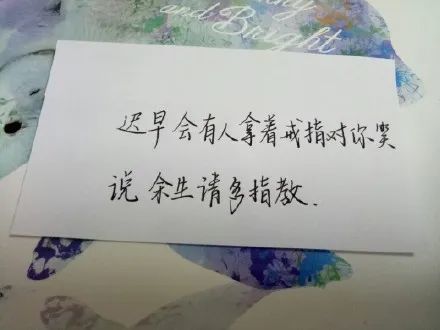 and
Bright
迟早会有人拿着戒指对你笑
说 余生请多指教.